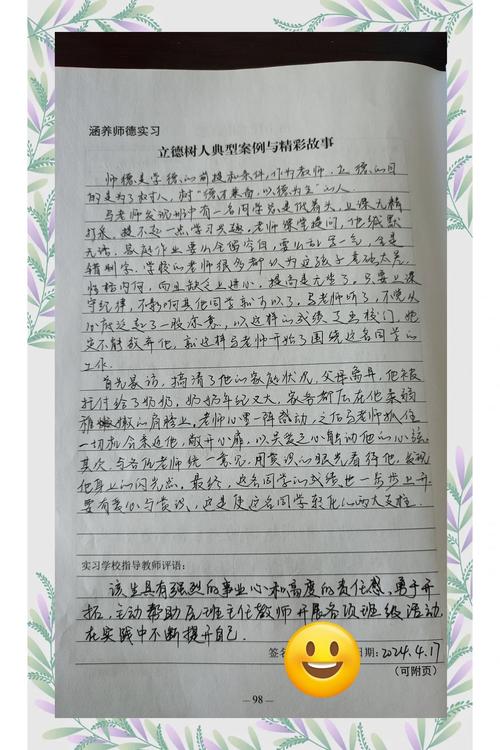 涵养师德实习
立德树人典型案例与精彩故事
师德是学德的前提和条件,作为教师,立德的目
的是为了树人,树“德才兼备,以德为主”的人.
马老师发现班中有一名同学总是低着头,上课无精
打采。提不起一点学习兴趣。老师课堂提问,他缄默
无语,家庭作业要么全留空白,要么乱写一气,全是
错别字。学校的老师很多都认为这孩子基础太差,
性格内向,而且缺乏上进心,提高是无望了。只要上课
守纪律,不影响其他同学就可以了。马老师听了,不觉从
心底泛起了一股凉意,以这样的成绩走出校门,她
决不能放弃他,就这样马老师开始了围绕这名同学的
工作.
首先家访,搞清了他的家庭状况,父母离异,他被
托付给了奶奶,奶奶年纪又大,家务都压在他柔弱
稚嫩的肩膀上。老师心里一阵酸动,之后马老师抓住
一切机会亲近他,敞开心扉,以关爱之心触动他的心弦。
其次,与各位老师统一意见,用赏识的眼光看待他,发现
他身上的闪光点。最终,这名同学的成绩也一步步上升
要有爱心与赏识,这是使这名同学转化的两大支柱.
实习学校指导教师评语:
该生具有强烈的事业心和高度的责任感,勇于开
拓,主动帮助原班主任教师开展各项班级活动,
在实践中不断提升自己.
签名 日期:2024.4.17
(可附页)
— 98 —